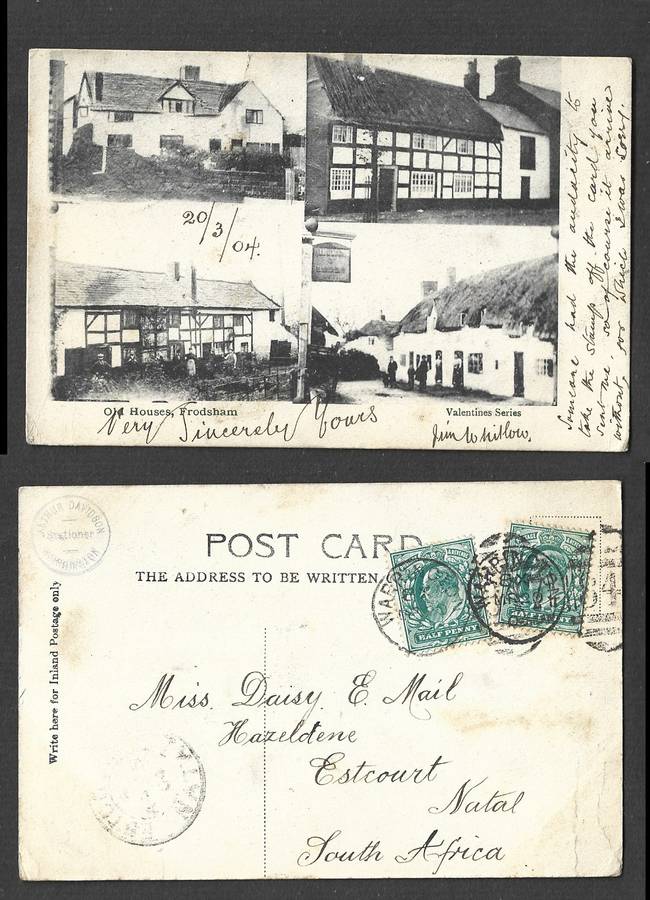 20/3/04.
Old Houses, Frodsham
Valentines Series
Very Sincerely Yours
Jim Whitlow.
Someone had the audacity to
take the stamp off the card you
sent me, so of course it arrived
without, for which I was sorry.
ARTHUR DAVIDSON
Stationer
POST CARD
THE ADDRESS TO BE WRITTEN
HALF PENNY
HALF PENNY
Write here for Inland Postage only
Miss. Daisy. E. Mail
Hazeldene
Estcourt
Natal
South Africa
NATAL